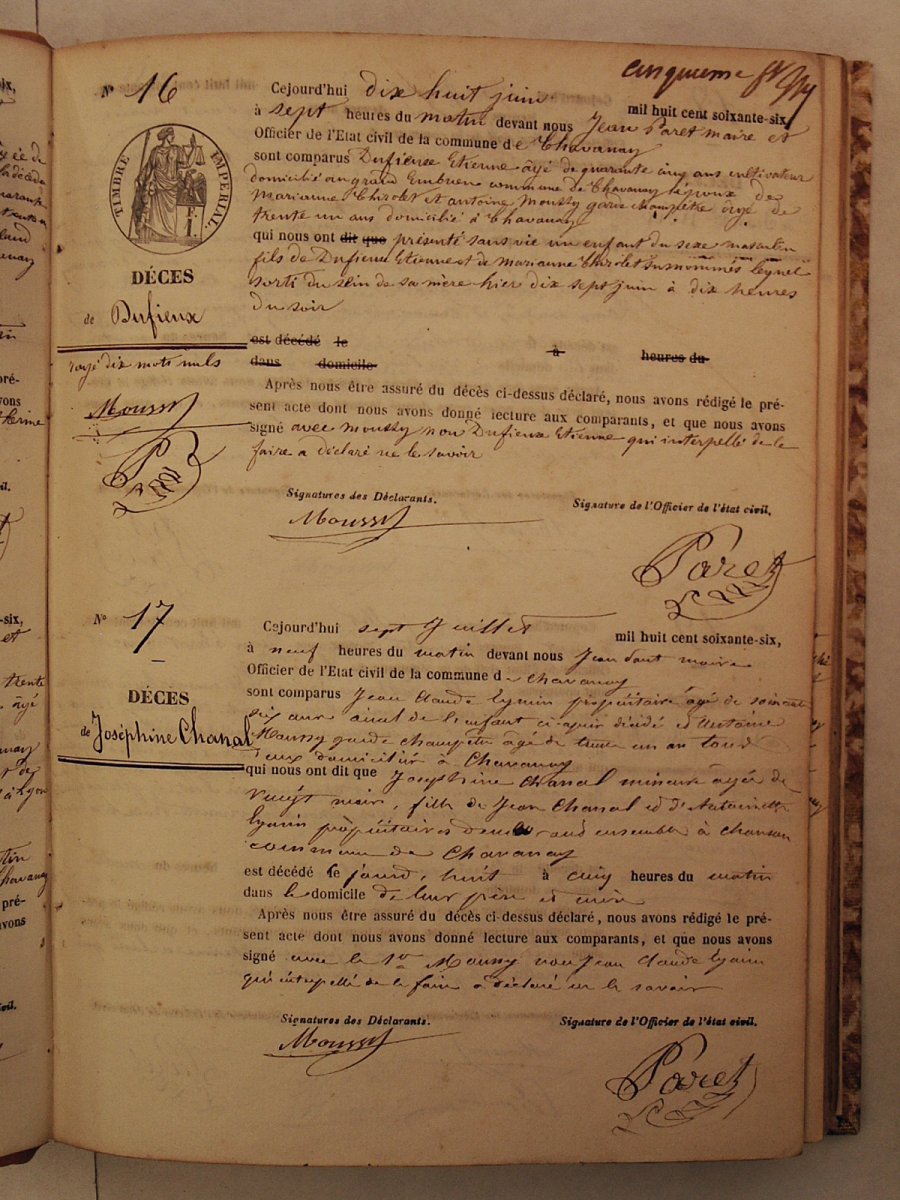 cinquième
N° 16
TIMBRE IMPERIAL.
1 F.
DÉCÈS
de Dufieux
rayé dix mots nuls
Moussy
P
Cejourd'hui dix huit juin
mil huit cent soixante-six,
à sept heures du matin devant nous Jean Paret maire et
Officier de l'Etat civil de la commune de Chavanay
sont comparus Dufieux Etienne âgé de quarante cinq ans cultivateur
domicilié au grand Embuen commune de Chavanay époux de
Marianne Chirolet et antoine Moussy garde champêtre âgé de
trente un ans domicilié à Chavanay
qui nous ont dit que présenté sans vie un enfant du sexe masculin
fils de Dufieux Etienne et de Marianne Chirolet susnommés lequel
sorti du sein de sa mère hier dix sept juin à dix heures
du soir
est décédé le à heures du
dans domicile
Après nous être assuré du décès ci-dessus déclaré, nous avons rédigé le pré-
sent acte dont nous avons donné lecture aux comparants, et que nous avons
signé avec Moussy non Dufieux Etienne qui interpellé de le
faire a déclaré ne le savoir
Signatures des Déclarants.
Signature de l'Officier de l'état civil.
Moussy
Paret
N° 17
DÉCÈS
de Joséphine Chanal
Cejourd'hui sept Juillet
mil huit cent soixante-six,
à neuf heures du matin devant nous Jean maire
Officier de l'Etat civil de la commune de Chavanay
sont comparus Jean Claude propriétaire âgé de soixante
six ans aïeul de l'enfant ci-après décédé et Antoine
Moussy garde champêtre âgé de trente un an tous
deux domiciliés à Chavanay
qui nous ont dit que Joséphine Chanal mineure âgée de
vingt mois, fille de Jean Chanal et d'Antoinette
propriétaires ensemble à Chanson
commune de Chavanay
est décédé le jourd'huit à cinq heures du matin
dans le domicile de leur père et mère
Après nous être assuré du décès ci-dessus déclaré, nous avons rédigé le pré-
sent acte dont nous avons donné lecture aux comparants, et que nous avons
signé avec le Sr Moussy non Jean Claude
qui interpellé de le faire a déclaré ne le savoir
Signatures des Déclarants.
Signature de l'Officier de l'état civil.
Moussy
Paret